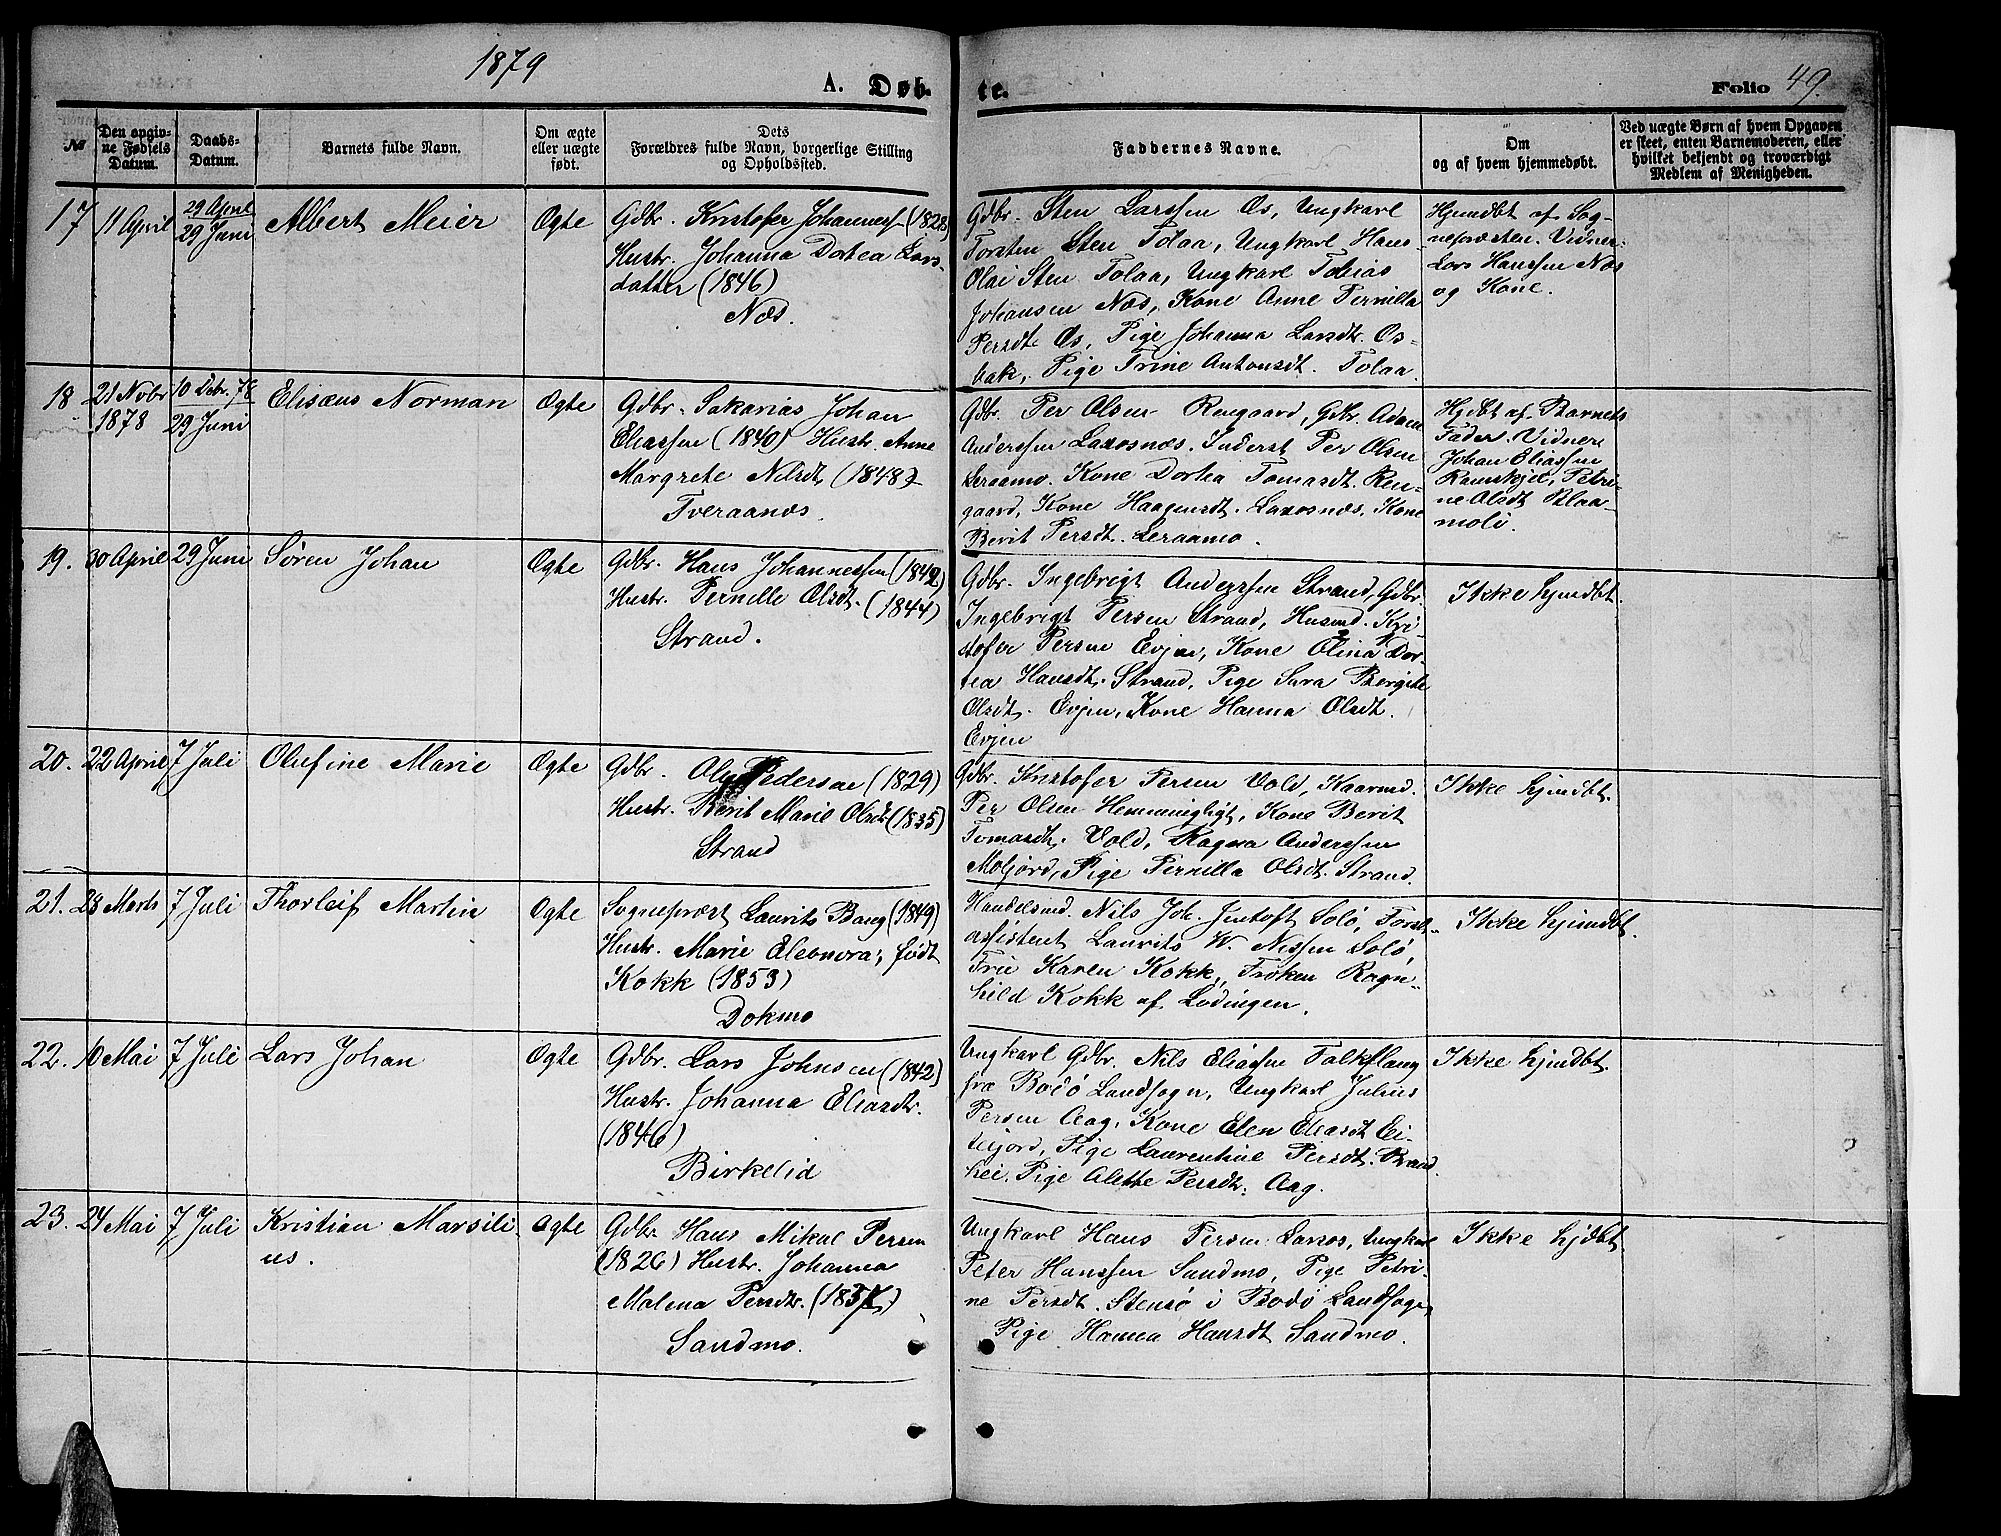 1879
A. Døb-
te.
Folio 49.
№
Den opgiv-
ne Fødsels
Datum.
Daabs-
Datum.
Barnets fulde Navn.
Om ægte
eller uægte
født.
Dets
Forældres fulde Navn, borgerlige Stilling
og Opholdssted.
Faddernes Navne.
Om
og af hvem hjemmedøbt.
Ved uægte Børn af hvem Opgaven
er skeet, enten Barnemoderen, eller
hvilket bekjendt og troværdigt
Medlem af Menigheden.
17
11 April
29 April
29 Juni
Albert Meier
Ægte
Gdbr. Kristofer Johanness. (1828)
Hustr. Johanna Dortea Lars-
datter (1846)
Næs.
Gdbr. Sten Larssen Os, Ungkarl
Torsten Sten Tolaa, Ungkarl Hans
Olai Sten Tolaa, Ungkarl Tobias
Johansen Næs, Kone Anne Pernilla
Persdt. Os, Pige Johanna Larsdt. Os-
bak, Pige Trine Antonsdt. Tolaa.
Hjemdbt af Sog-
nepræsten. Vidner:
Lars Hanssen Næs
og Kone.
18
21 Novbr
1878
10 Debr. 78
29 Juni
Elisæus Norman
Ægte
Gdbr. Sakarias Johan
Eliassen (1840) Hustr. Anne
Margrete Nilsdt. (1848)
Tveraanes.
Gdbr. Per Olsen Rengaard, Gdbr. Adam
Anderssen Laxosnæs. Inderst Per Olsen
Leraamo. Kone Dortea Tomasdt. Ren-
gaard, Kone Haagensdt. Laxosnæs. Kone
Berit Persdt. Leraamo.
Hjdbt af Barnets
Fader. Vidnere
Johan Eliassen
Ramskjel, Petri-
ne Olsdt Blaa-
moli.
19.
30 April
29 Juni
Søren Johan
Ægte
Gdbr. Hans Johannessen (1842)
Hustr. Pernille Olsdt. (1844)
Strand.
Gdbr. Ingebrigt Anderssen Strand, Gdbr.
Ingebrigt Persen Strand, Husmd. Kri-
stofer Persen Evjen, Kone Olina Dor-
tea Hansdt. Strand, Pige Sara Bergite
Olsdt. Evjen, Kone Hanna Olsdt.
Evjen
Ikke hjemdbt.
20.
22 April
7 Juli
Olufine Marie
Ægte
Gdbr. Ole Pedersen (1829)
Hustr. Berit Marie Olsdt. (1835)
Strand
Gdbr. Kristofer Persen Vold, Kaarmd.
Per Olsen Hemmingligt, Kone Berit
Tomasdt. Vold, Ragna Anderssen
Moljord, Pige Pernilla Olsdt. Strand.
Ikke hjemdbt.
21.
23 Marts
7 Juli
Thorleif Martin
Ægte
Sognepræst Laurits Bang (1849)
Hustr. Marie Eleonora, født
Kokk (1853)
Dokmo
Handelsmd. Nils Joh. Jentoft Solö, Forst-
assistent Laurits W. Nissen Solö,
Frue Karen Kokk, Frøken Ragn-
hild Kokk af Lødingen.
Ikke hjemdbt.
22.
10 Mai
7 Juli
Lars Johan
Ægte
Gdbr. Lars Johnsen (1842)
Hustr. Johanna Eliasdt.
(1846)
Birkelid
Ungkarl Gdbr. Nils Eliassen Falkflaug
fra Bodö Landsogn, Ungkarl Julius
Persen Aag, Kone Elen Eliasdt Ei-
defjord, Pige Laurentine Persdt. Brand-
hei, Pige Alette Persdt. Aag.
Ikke hjemdbt.
23.
24 Mai
7 Juli
Kristian Marsili-
us.
Ægte
Gdbr. Hans Mikal Persen
(1826) Hustr. Johanna
Malena Persdt. (1837)
Sandmo.
Ungkarl Hans Persen Laxos, Ungkarl
Peter Hanssen Sandmo, Pige Petri-
ne Persdt. Stensö i Bodö Landsogn,
Pige Hanna Hansdt Sandmo.
Ikke hjdbt.